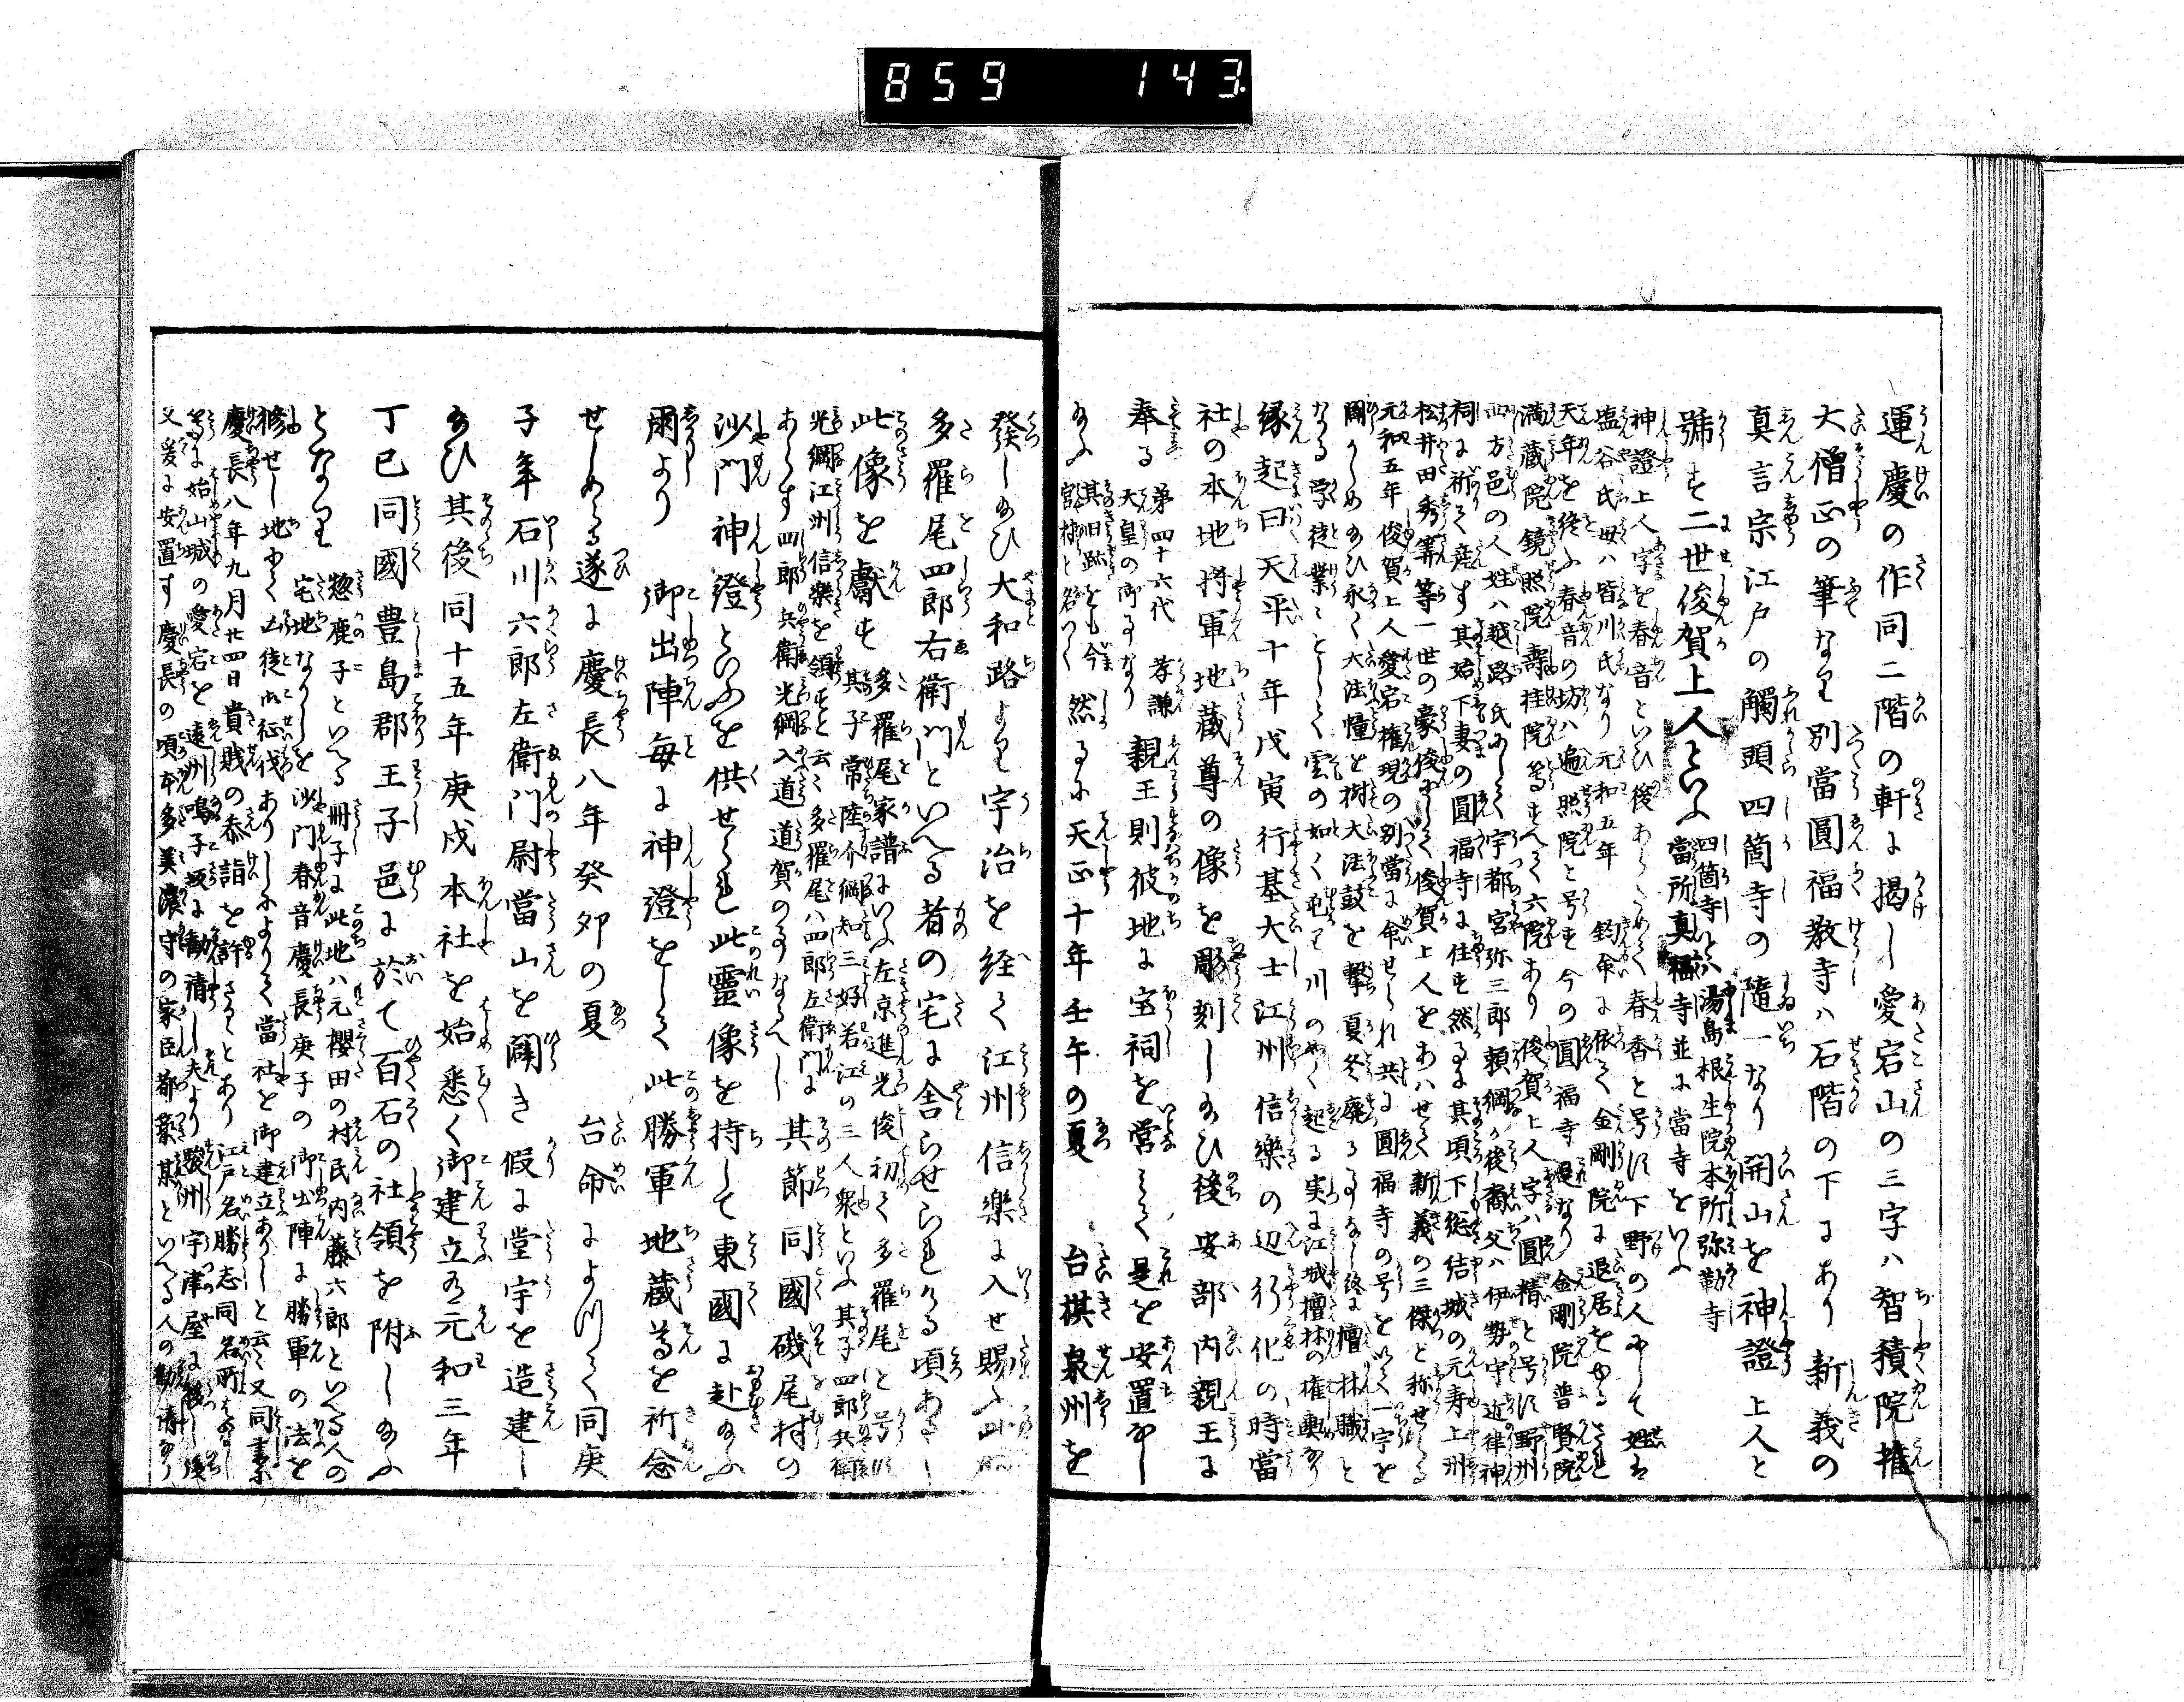 859 143
運慶の作同二階の軒に掲し愛宕山の三字ハ智積院権
大僧正の筆なり別當圓福教寺ハ石階の下にあり新義の
真言宗江戸の觸頭四箇寺の随一なり開山を神證上人と
號す二世俊賀上人といふ四箇寺といふハ湯島根生院本所弥勒寺
當所真福寺並に當寺をいふ
神證上人字を春音といひ後あらためて春香と号す下野の人にして姓は
塩谷氏母ハ皆川氏なり元和五年鈞命に依て金剛院に退居をゆるされ
天年を終ふ春音の坊ハ遍照院と号す今の圓福寺是なり金剛院普賢院
満蔵院鏡照院壽桂院等すへて六院あり俊賀上人字ハ圓精と号す野州
西方邑の人姓ハ越路氏にして宇都宮弥三郎頼綱か後裔父ハ伊勢守近律神
祠に祈て産す其始下妻の圓福寺に住す然るに其頃下総結城の元寿上州
松井田秀算等一世の豪俊にして俊賀上人をあハせて新義の三傑と称せしる
元和五年俊賀上人愛宕権現の別當に命せられ共に圓福寺の号を以て一宇を
開かしめ給ひ永く大法幢を樹大法鼓を撃夏冬廃る事なし終に檀林職と
なる学徒業々として雲の如く川のことく起る実に江城檀林の権輿なり
縁起曰天平十年戊寅行基大士江州信樂の辺行化の時當
社の本地将軍地蔵尊の像を彫刻し給ひ後安部内親王に
奉る第四十六代孝謙
天皇の御事なり親王則彼地に宝祠を営て是を安置し
其旧跡をも今
宮村と名つく然るに天正十年壬午の夏台棋泉州を
發し給ひ大和路より宇治を経て江州信樂に入せ賜ふ此時
多羅尾四郎右衛門といへる者の宅に舎らせられける頃あるし
此像を獻す多羅尾家譜にいふ左京進光俊初て多羅尾と号す
其子常陸介綱知三好若江の三人衆といふ其子四郎兵衛
光綱江州信樂を領すと云々多羅尾八四郎左衛門に
あらす四郎兵衛光綱入道道賀の事なるへし其節同國磯尾村の
沙門神證といふを供せられ此霊像を持して東國に赴給ふ
爾より御出陣毎に神證をして此勝軍地蔵尊を祈念
せしめらる遂に慶長八年癸卯の夏台命によりて同庚
子年石川六郎左衛門尉當山を闢き假に堂宇を造建し
給ひ其後同十五年庚戌本社を始悉く御建立ある元和三年
丁巳同國豊島郡王子邑に於て百石の社領を附し給ふ
となり惣鹿子といへる冊子に此地ハ元櫻田の村民内藤六郎といへる人の
宅地なりしを沙門春音慶長庚子の御出陣に勝軍の法を
修せし地にて凶徒御征伐ありしによりて當社を御建立ありしと云々又同書
慶長八年九月廿四日貴賤の参詣を許さるとあり江戸名勝志同名所
等に始山城の愛宕を遠州鳴子坂に勧請し夫より駿州宇津屋に後
又爰に安置す慶長の頃本多美濃守の家臣都築某といへる人の勧請なり